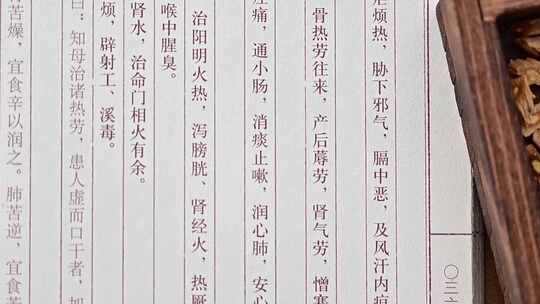 烦热，胁下邪气，膈中恶，及风汗内疸
骨热劳往来，产后蓐劳，肾气劳，憎寒
疰痛，通小肠，消痰止嗽，润心肺，安心
治阳明火热，泻膀胱、肾经火，热厥
喉中腥臭。
肾水，治命门相火有余。
烦，辟射工、溪毒。
曰：知母治诸热劳，患人虚而口干者，加
苦燥，宜食辛以润之。肺苦逆，宜食苦
〇三